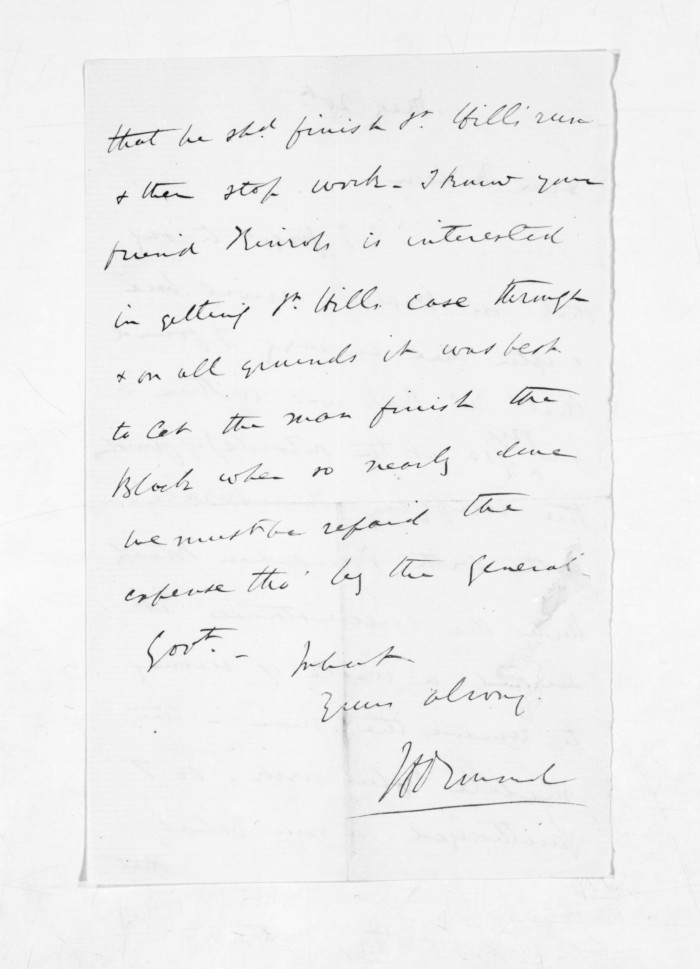 that he shd. finish Jn. Hill's run
& then stop work - I know your
friend Kinross is interested
in getting Jn. Hills case through
& on all grounds it was best
to let the man finish the
Block when so nearly done
we must be repaid the
expense tho' by the General
Govt. - In haste
Yours always